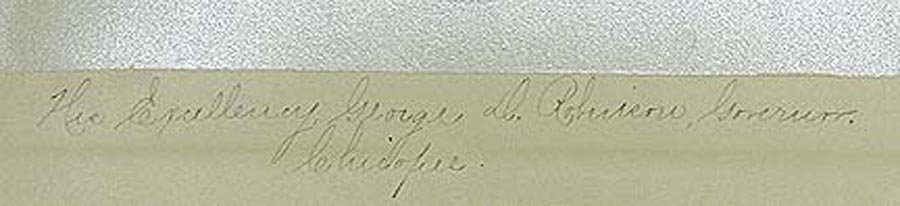 His Excellency, George D. Robinson, Governor.
Chicopee.